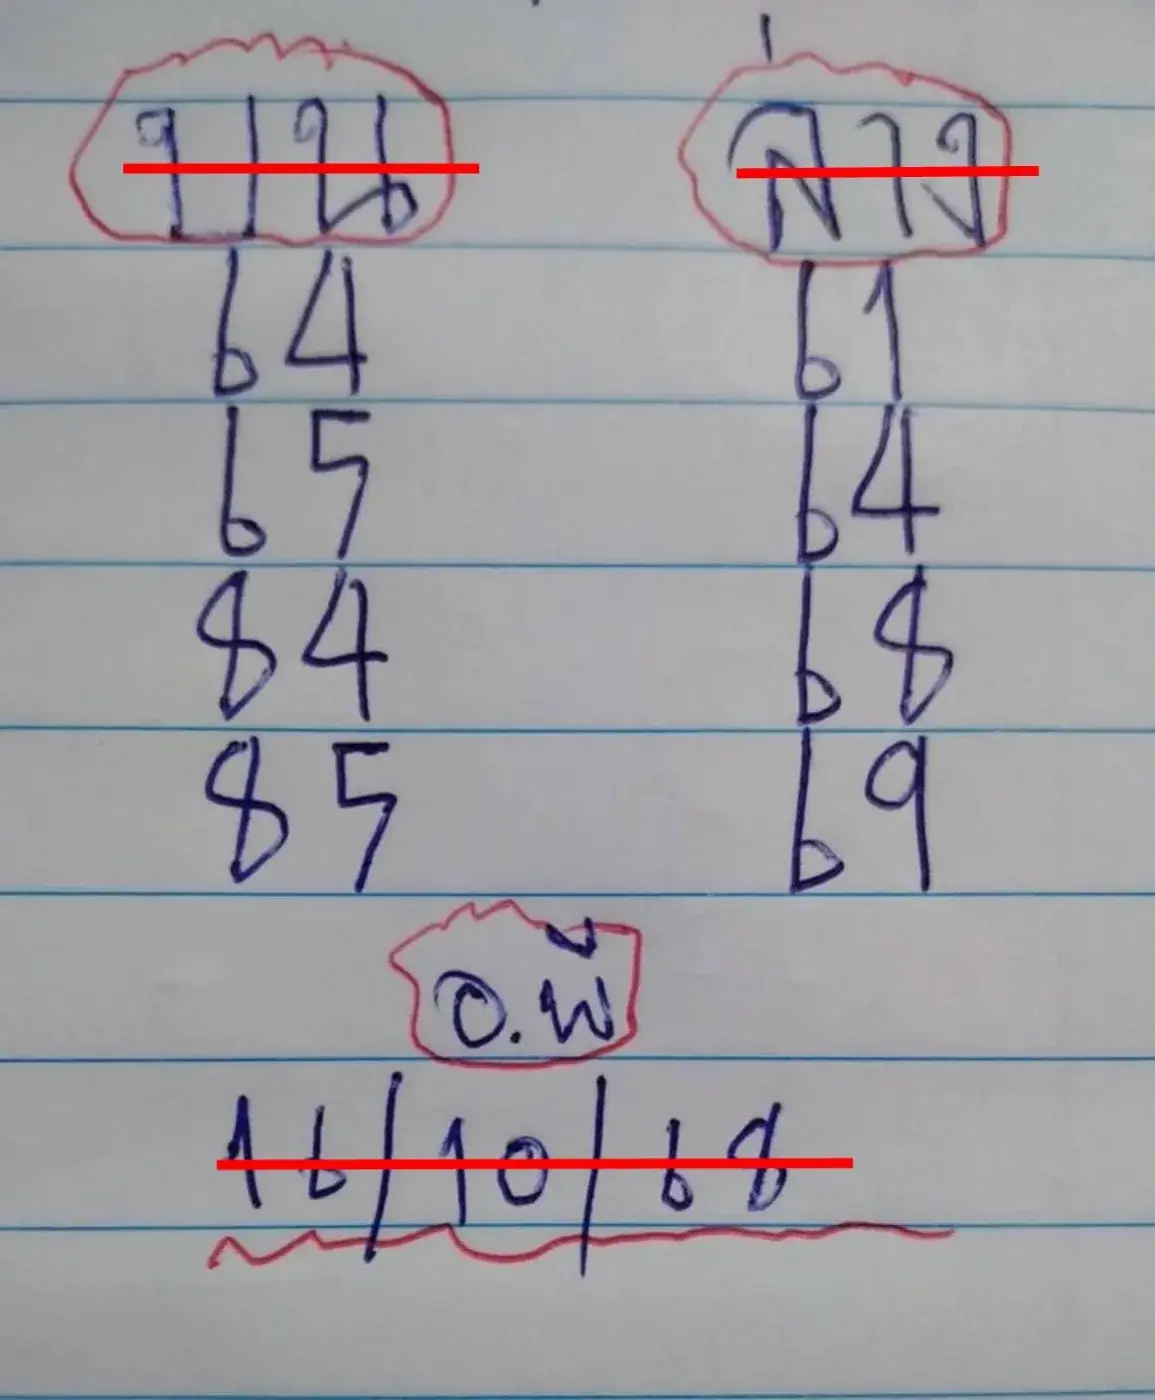 บน ล่าง
64 61
65 64
84 68
85 69
อ.พี
16/10/68